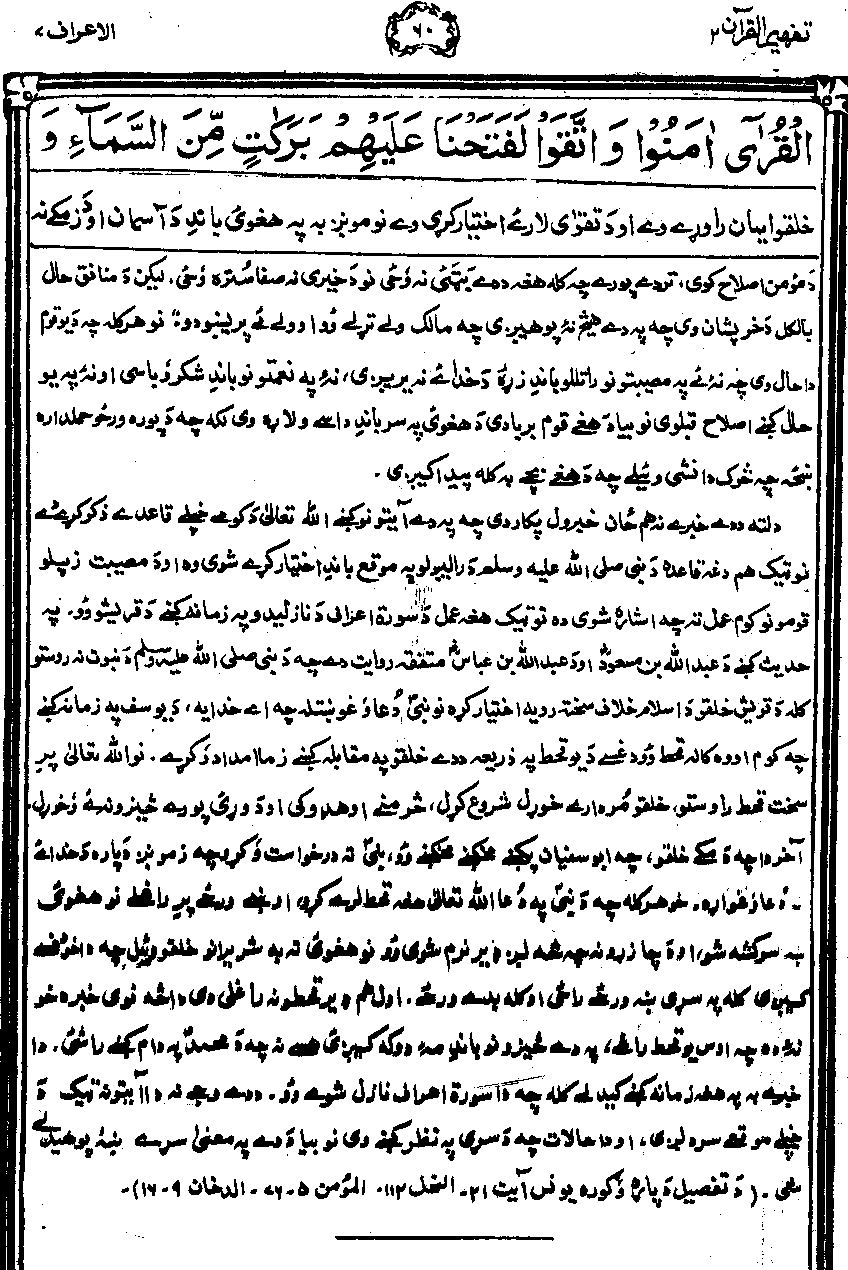 تفهيم القرآن ۲
۶۰
الاعراف ۷
الْقُرٰٓى اٰمَنُوْا وَ اتَّقَوْا لَفَتَحْنَا عَلَيْهِمْ بَرَكٰتٍ مِّنَ السَّمَآءِ وَ
خلقو ايمان راوړے وے او دَ تقوٰى لارے اختيار کړى وے نو مونږ به په هغوئ باندِ دَ آسمان او دَ زمکے نه
دَ مؤمن اصلاح کوى، تر دے پورے چه کله هغه دے بهټئ نه وُځى نو دَ خيرى نه صفا سُتره وُځى. ليکن دَ منافق حال
بالکل دَ خر پشان وى چه په دے هيڅ نۀ پوهيږى چه مالک ولے تړلے وُو او ولے ئے پريښودو" نو هرکله چه دَ يو قوم
دا حال وى چه نۀ ئے په مصيبتونو راتللو باندِ زړۀ دَ خدائے نه يريږى، نۀ په نعمتونو باندِ شکر ګزاَ باسى او نۀ په يو
حال کښے اصلاح قبلوى نو بيا دَ هغے قوم بربادى دَ هغوئ په سر باندِ داسے ولاړه وى لکه چه دَ پوره ورځو حملداره
ښځه چه څوک دا نشى وئيلے چه دَ هغے بچے به کله پيدا کيږى.
دلته ددے خبرے نه هم ځان خبرول پکار دى چه په دے آيتونو کښے الله تعالىٰ دَ کومے خپلے قاعدے ذکر کړے دے
نو ټيک هم دغه قاعده دَ نبى صلى الله عليه وسلم دَ راليږلو په موقع باندِ اختيار کړے شوى وه او دَ مصيبت زپلو
قومونو کوم عمل ته چه اشاره شوى ده نو ټيک هغه عمل دَ سورة اعراف دَ نازليدو په زمانه کښے دَ قريشو وُو. په
حديث کښے دَ عبدالله بن مسعودؓ او دَ عبدالله بن عباسؓ متفقه روايت دے چه دَ نبى صلى الله عليه وسلم دَ نبوت نه روستو
کله دَ قريش خلقو دَ اسلام خلاف سخته رويه اختيار کړه نو نبىؐ دُعا وُ غوښتله چه اے خدايه، دَ يوسف په زمانه کښے
چه کوم اووه کاله قحط وُو دغسے دَ يو قحط په ذريعه ددے خلقو په مقابله کښے زما امداد وُکړے. نو الله تعالىٰ پرِ
سخت قحط راوستو، خلقو مُرداره خوړل شروع کړل، څرمنے او هډوکى او دَ وړئ پورے څيزونه ئے وُخوړل،
آخر دا چه دَ مکے خلقو، چه ابوسفيان پکښے وُو، نبىؐ ته درخواست وُکړو چه زمونږ دَپاره دَ خدائے
نه دُعا وُغواړه. خو هرکله چه دَ نبىؐ په دُعا الله تعالىٰ هغه قحط لرے کړو، او ښے ورځے پرِ راغلے نو هغوئ
نور سرکشه شو، او دَ چا زړونه چه څه لږ ډير نرم شوى وُو نو هغوئ ته به شريرانو خلقو وئيل چه دا خو هسے
کيږى کله په سړى ښه ورځے راځى او کله بدے ورځے. اول هم ډير قحطونه راغلى دى دا څه نوى خبره خو
نۀ ده چه اوس يو قحط راغلے، په دے څيزونو باندِ مه دوکه کيږئ هسے نه چه دَ محمدؐ په دام کښے راشئ. دا
خبرے به په هغه زمانه کښے کيدلے کله چه دا سورة اعراف نازل شوے وُو. ددے وجے نه دا آيتونه ټيک دَ
خپلے موقعے سره لږى، او دا حالات چه دَ سړى په نظر کښے وى نو بيا دَ دے په معنىٰ سرے ښۀ پوهيدلے
شى. (دَ تفصيل دَپاره وُګوره يونس آيت ۲۱- النحل ۱۱۲- المؤمن ۵-۷۶- الدخان ۹-۱۶)-